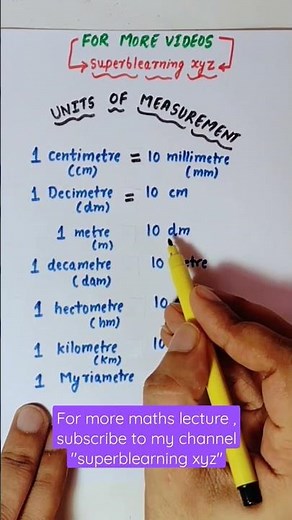 FOR MORE VIDEOS
superblearning xyz
UNITS OF MEASUREMENT
1 centimetre = 10 millimetre
(cm) (mm)
1 Decimetre = 10 cm
(dm)
1 metre 10 dm
(m)
1 decametre 10
(dam)
1 hectometre 10
(hm)
1 kilometre 10
(km)
1 Myriametre
For more maths lecture ,
subscribe to my channel
"superblearning xyz"